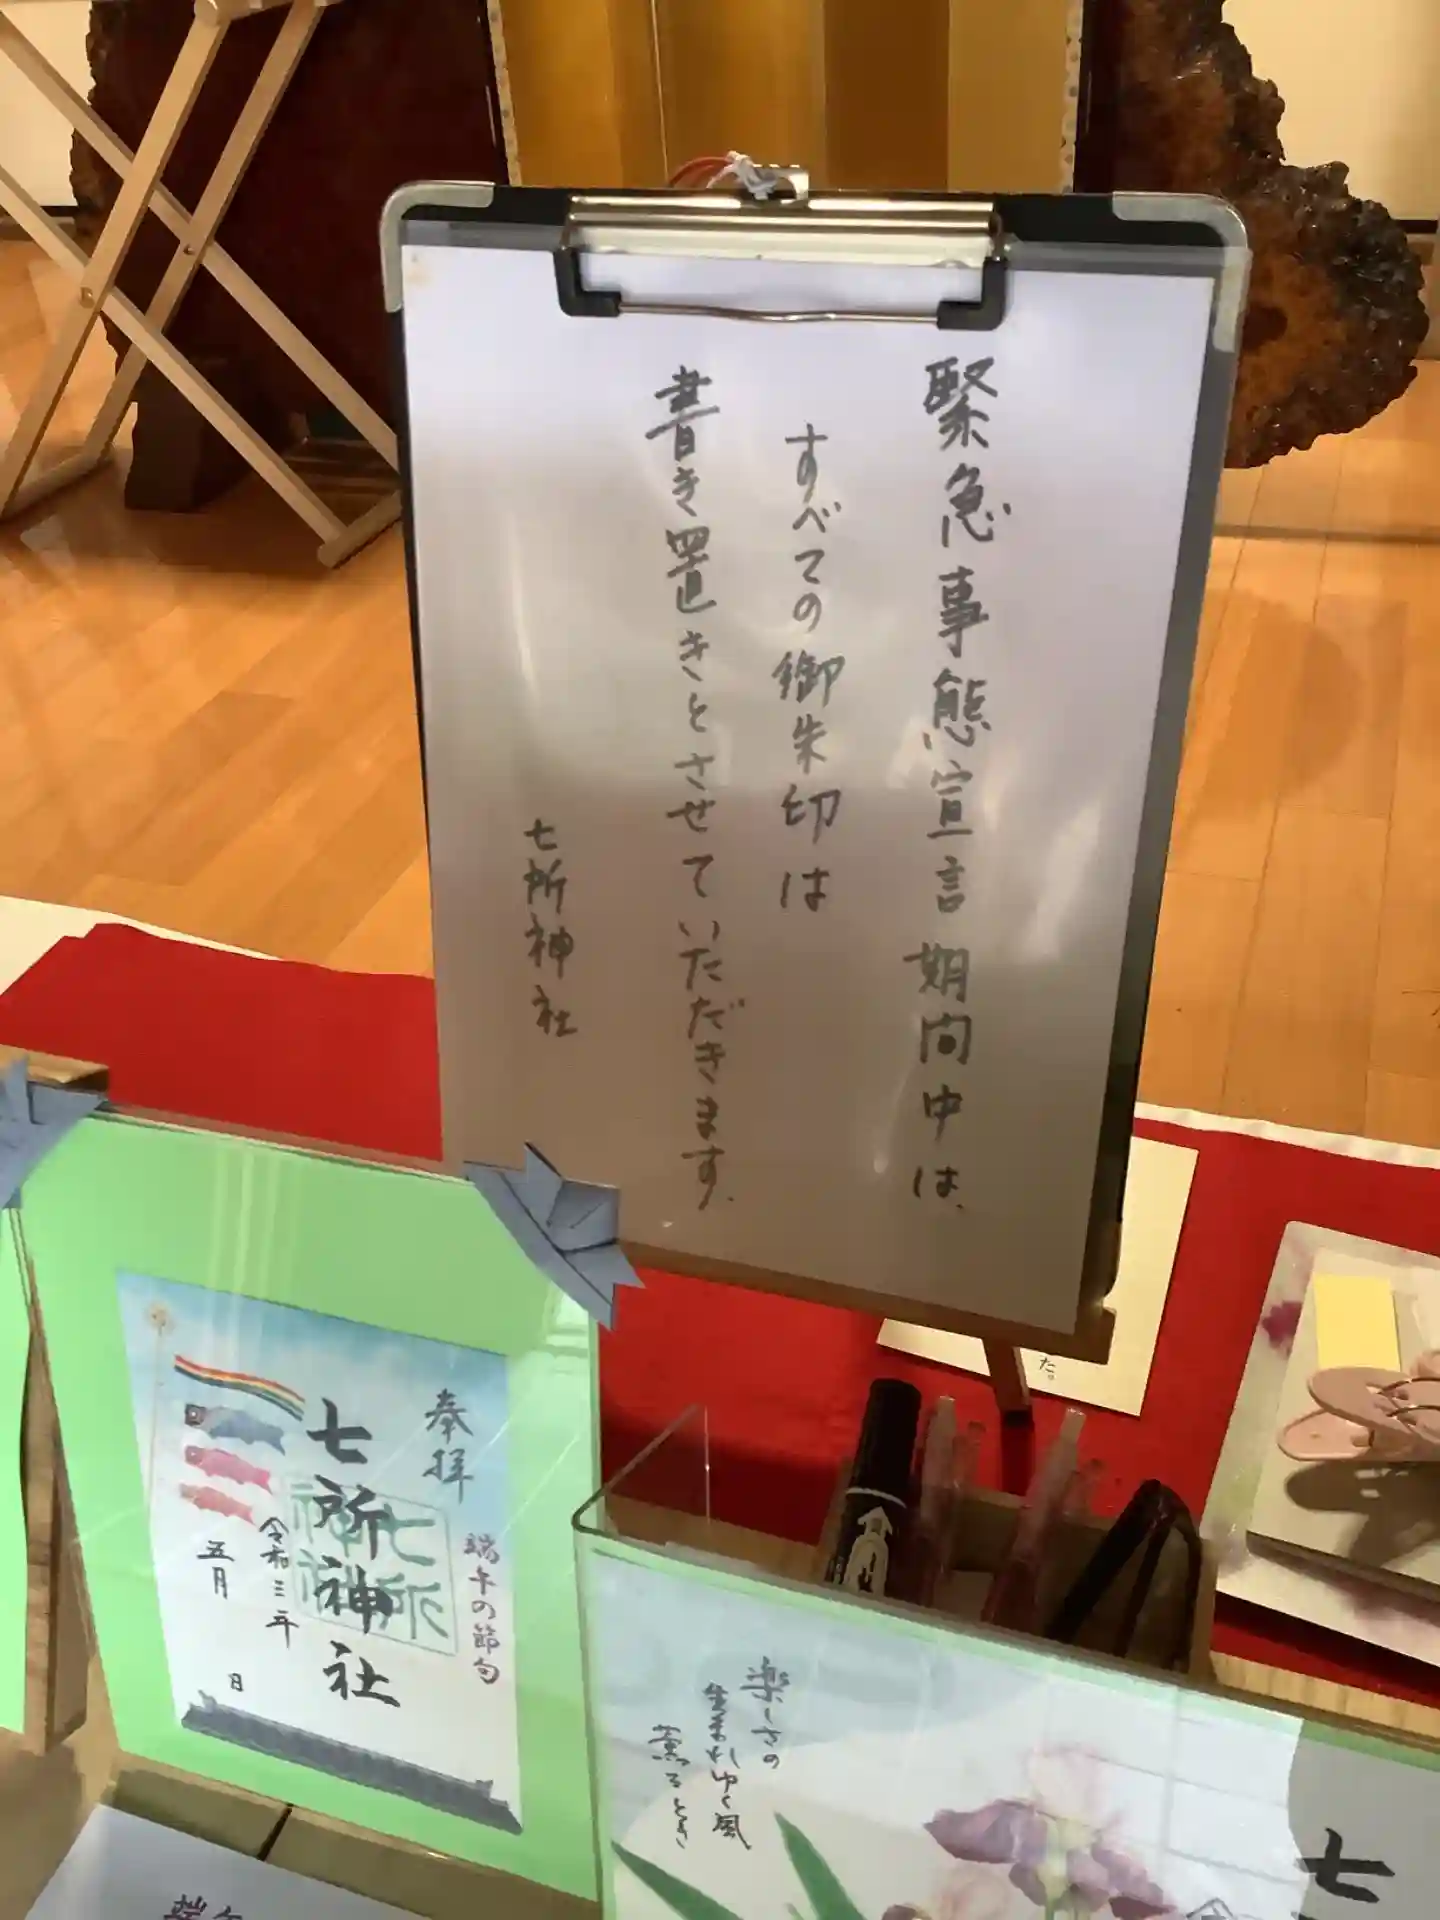 緊急事態宣言期間中は、
すべての御朱印は
書き置きとさせていただきます。
七所神社
奉拝
端午の節句
七所神社
七所神社
令和三年
五月
日
楽しさの
生まれゆく風
薫るとき
七
た。
端午